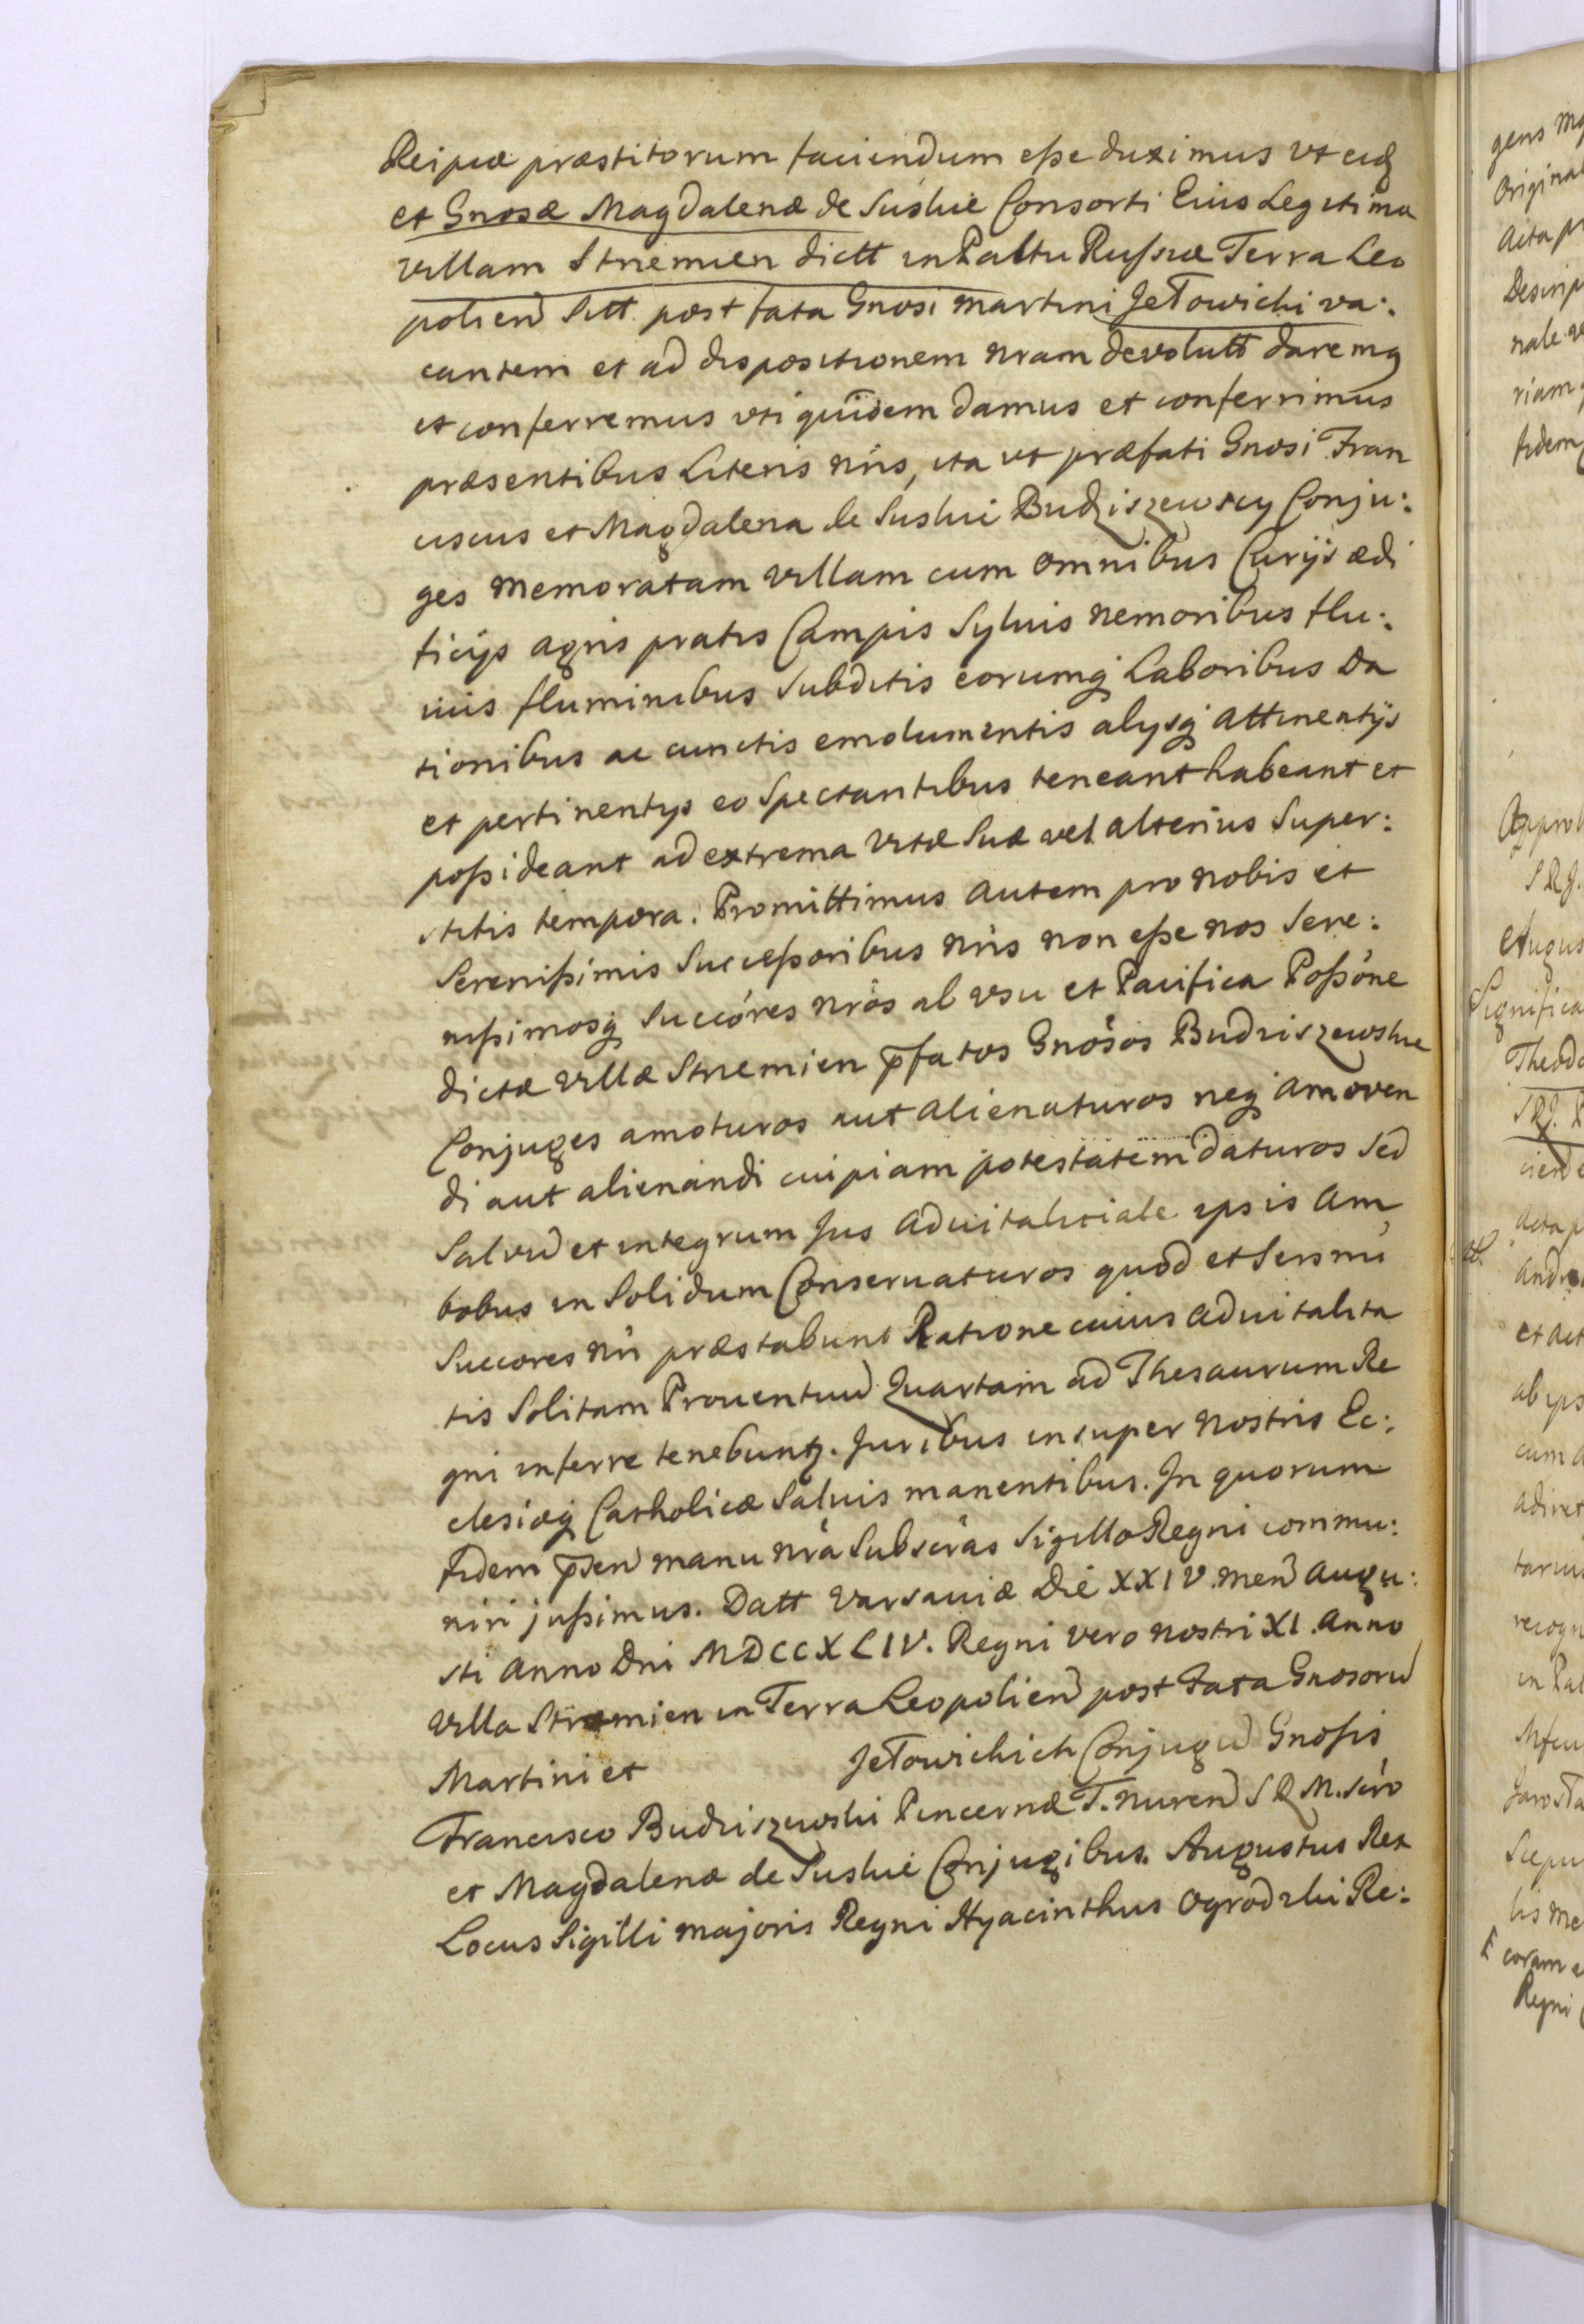 Reipcæ præstitorum faciendum eße duximus vt eid
et Gnosæ Magdalenæ de Suskie Consorti Eius Legitima
villam Strzemien dictt in Paltu Rußiæ Terra Leo
polien Sitt. post fata Gnosi Martini Jełowicki va:
cantem et ad dispositionem nram devolutt daremq
et conferremus vti quidem damus et conferrimus
præsentibus Literis nris, ita vt præfati Gnosi Fran
ciscus et Magdalena de Suskie Budziszewscy Conju:
ges memoratam villam cum omnibus Curijs ædi
ficijs agris pratis Campis Sylvis nemoribus flu:
viis fluminibus Subditis eorumq Laboribus Da
tionibus ac cunctis emolumentis alysq attinentijs
et pertinentys eo Spectantibus teneant habeant et
poßideant ad extrema vitæ Suæ vel alterius Super:
stitis tempora. Promittimus autem pro nobis et
Serenißimis Succeßoribus nris non eße nos Sere:
nißimosq Succores nros ab vsu et Pacifica Poßone
dictæ villæ Strzemien pfatos Gnosos Budziszewskie
Conjuges amoturos aut alienaturos neq amoven
di aut alienandi cuipiam potestatem daturos Sed
Salvu et integrum Jus advitalitiale ipsis Am
bobus in Solidum Conservaturos quod et Sersmi
Succores nri præstabunt Ratione cuius advitalita
tis Solitam Proventuu Quartam ad Thesaurum Re
gni inferre tenebuntr. Juribus insuper nostris Ec:
clesiæq Catholicæ Salvis manentibus. In quorum
fidem psen manu nra Subscras Sigillo Regni commu:
niri jußimus. Datt Varsaviæ Die XXIV men Augu:
sti Anno Dni MDCCXLIV. Regni vero nostri XI. Anno
Villa Strzemien in Terra Leopolien post Fata Gnosoru
Martini et Jełowickich Conjugu Gnosis
Francisco Budziszewski Pincernæ T. Nuren S R M. Scro
et Magdalenæ de Suskie Conjugibus. Augustus Rex
Locus Sigilli majoris Regni Hyacinthus Ogrodzki Re:
gens
Origina
Acta
nale
riam
fidem
Augus
Significa
et act
ab ips
cum
recogn
in Pal
coram
Regni